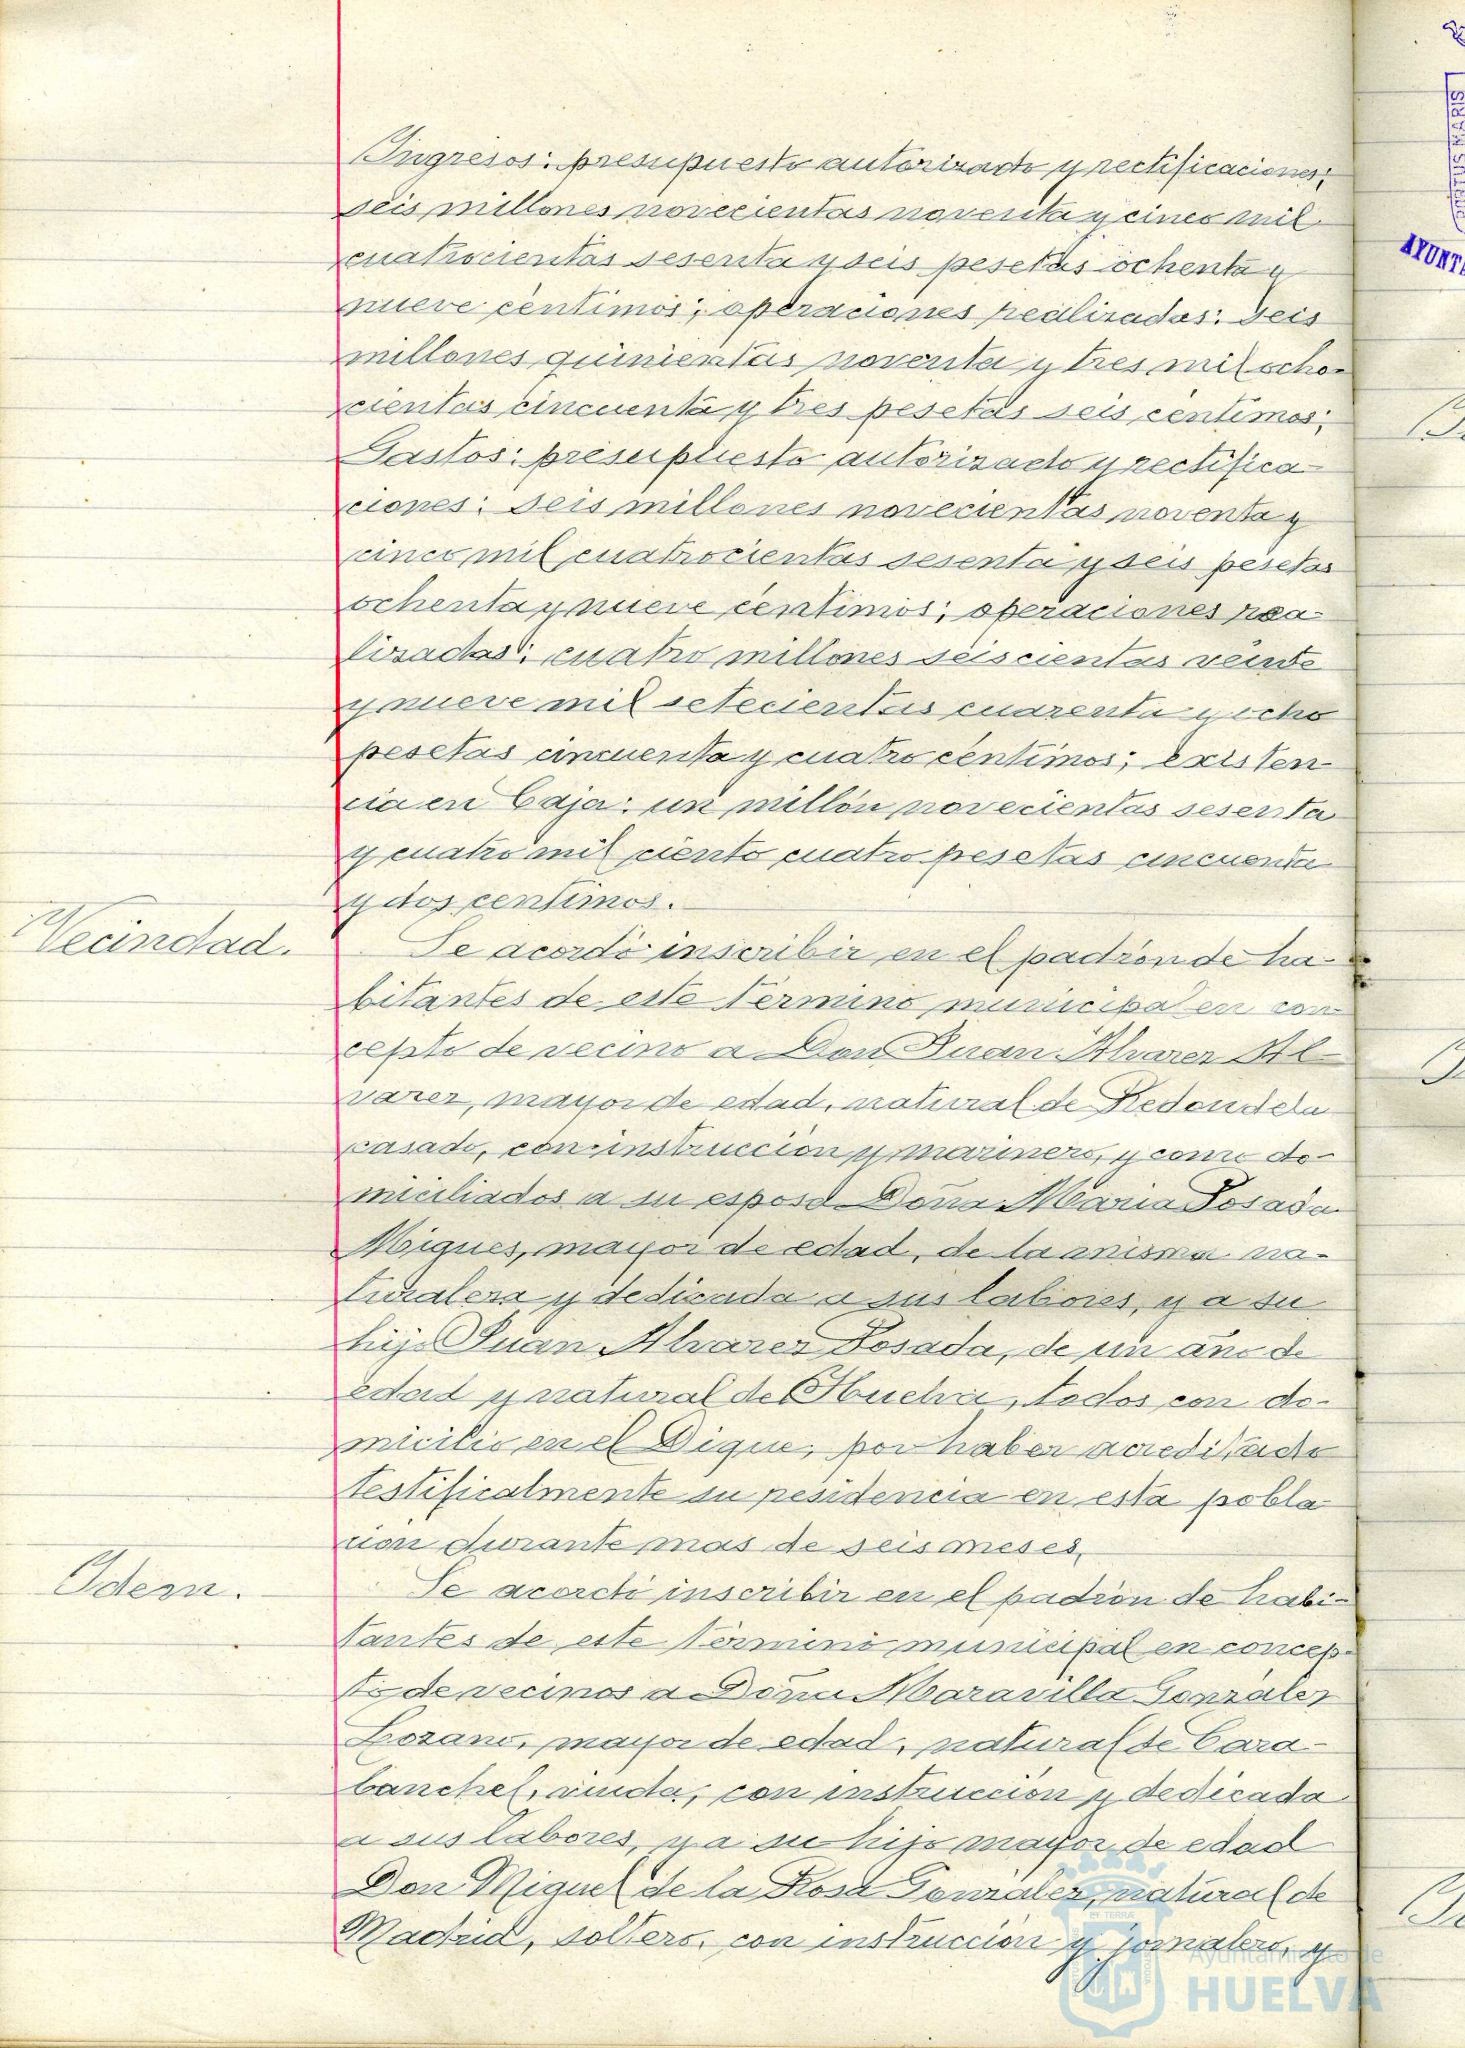 Ingresos: presupuesto autorizado y rectificaciones;
seis millones novecientas noventa y cinco mil
cuatrocientas sesenta y seis pesetas ochenta y
nueve céntimos; operaciones realizadas: seis
millones quinientas noventa y tres mil ocho-
cientas cincuenta y tres pesetas seis céntimos;
Gastos: presupuesto autorizado y rectifica-
ciones: seis millones novecientas noventa y
cinco mil cuatrocientas sesenta y seis pesetas
ochenta y nueve céntimos; operaciones rea-
lizadas: cuatro millones seiscientas veinte
y nueve mil setecientas cuarenta y ocho
pesetas cincuenta y cuatro céntimos; existen-
cia en Caja: un millón novecientas sesenta
y cuatro mil ciento cuatro pesetas cincuenta
y dos centimos.
Vecindad.
Se acordó inscribir en el padrón de ha-
bitantes de este término municipal en con-
cepto de vecino a Don Juan Alvarez Al-
varez, mayor de edad, natural de Redondela
casado, con instrucción y marinero, y como do-
miciliados a su esposa Doña Maria Posada
Migues, mayor de edad, de la misma na-
turaleza y dedicada a sus labores, y a su
hijo Juan Alvarez Posada, de un año de
edad y natural de Huelva, todos con do-
micilio en el Dique, por haber acreditado
testificalmente su residencia en esta pobla-
cion durante mas de seis meses.
Idem.
Se acordó inscribir en el padrón de habi-
tantes de este término municipal en concep-
to de vecinos a Doña Maravilla González
Lozano, mayor de edad, natural de Cara-
banchel, viuda, con instrucción y dedicada
a sus labores, y a su hijo mayor de edad
Don Miguel de la Rosa González, natural de
Madrid, soltero, con instrucción y jornalero, y
Ayuntamiento de
HUELVA